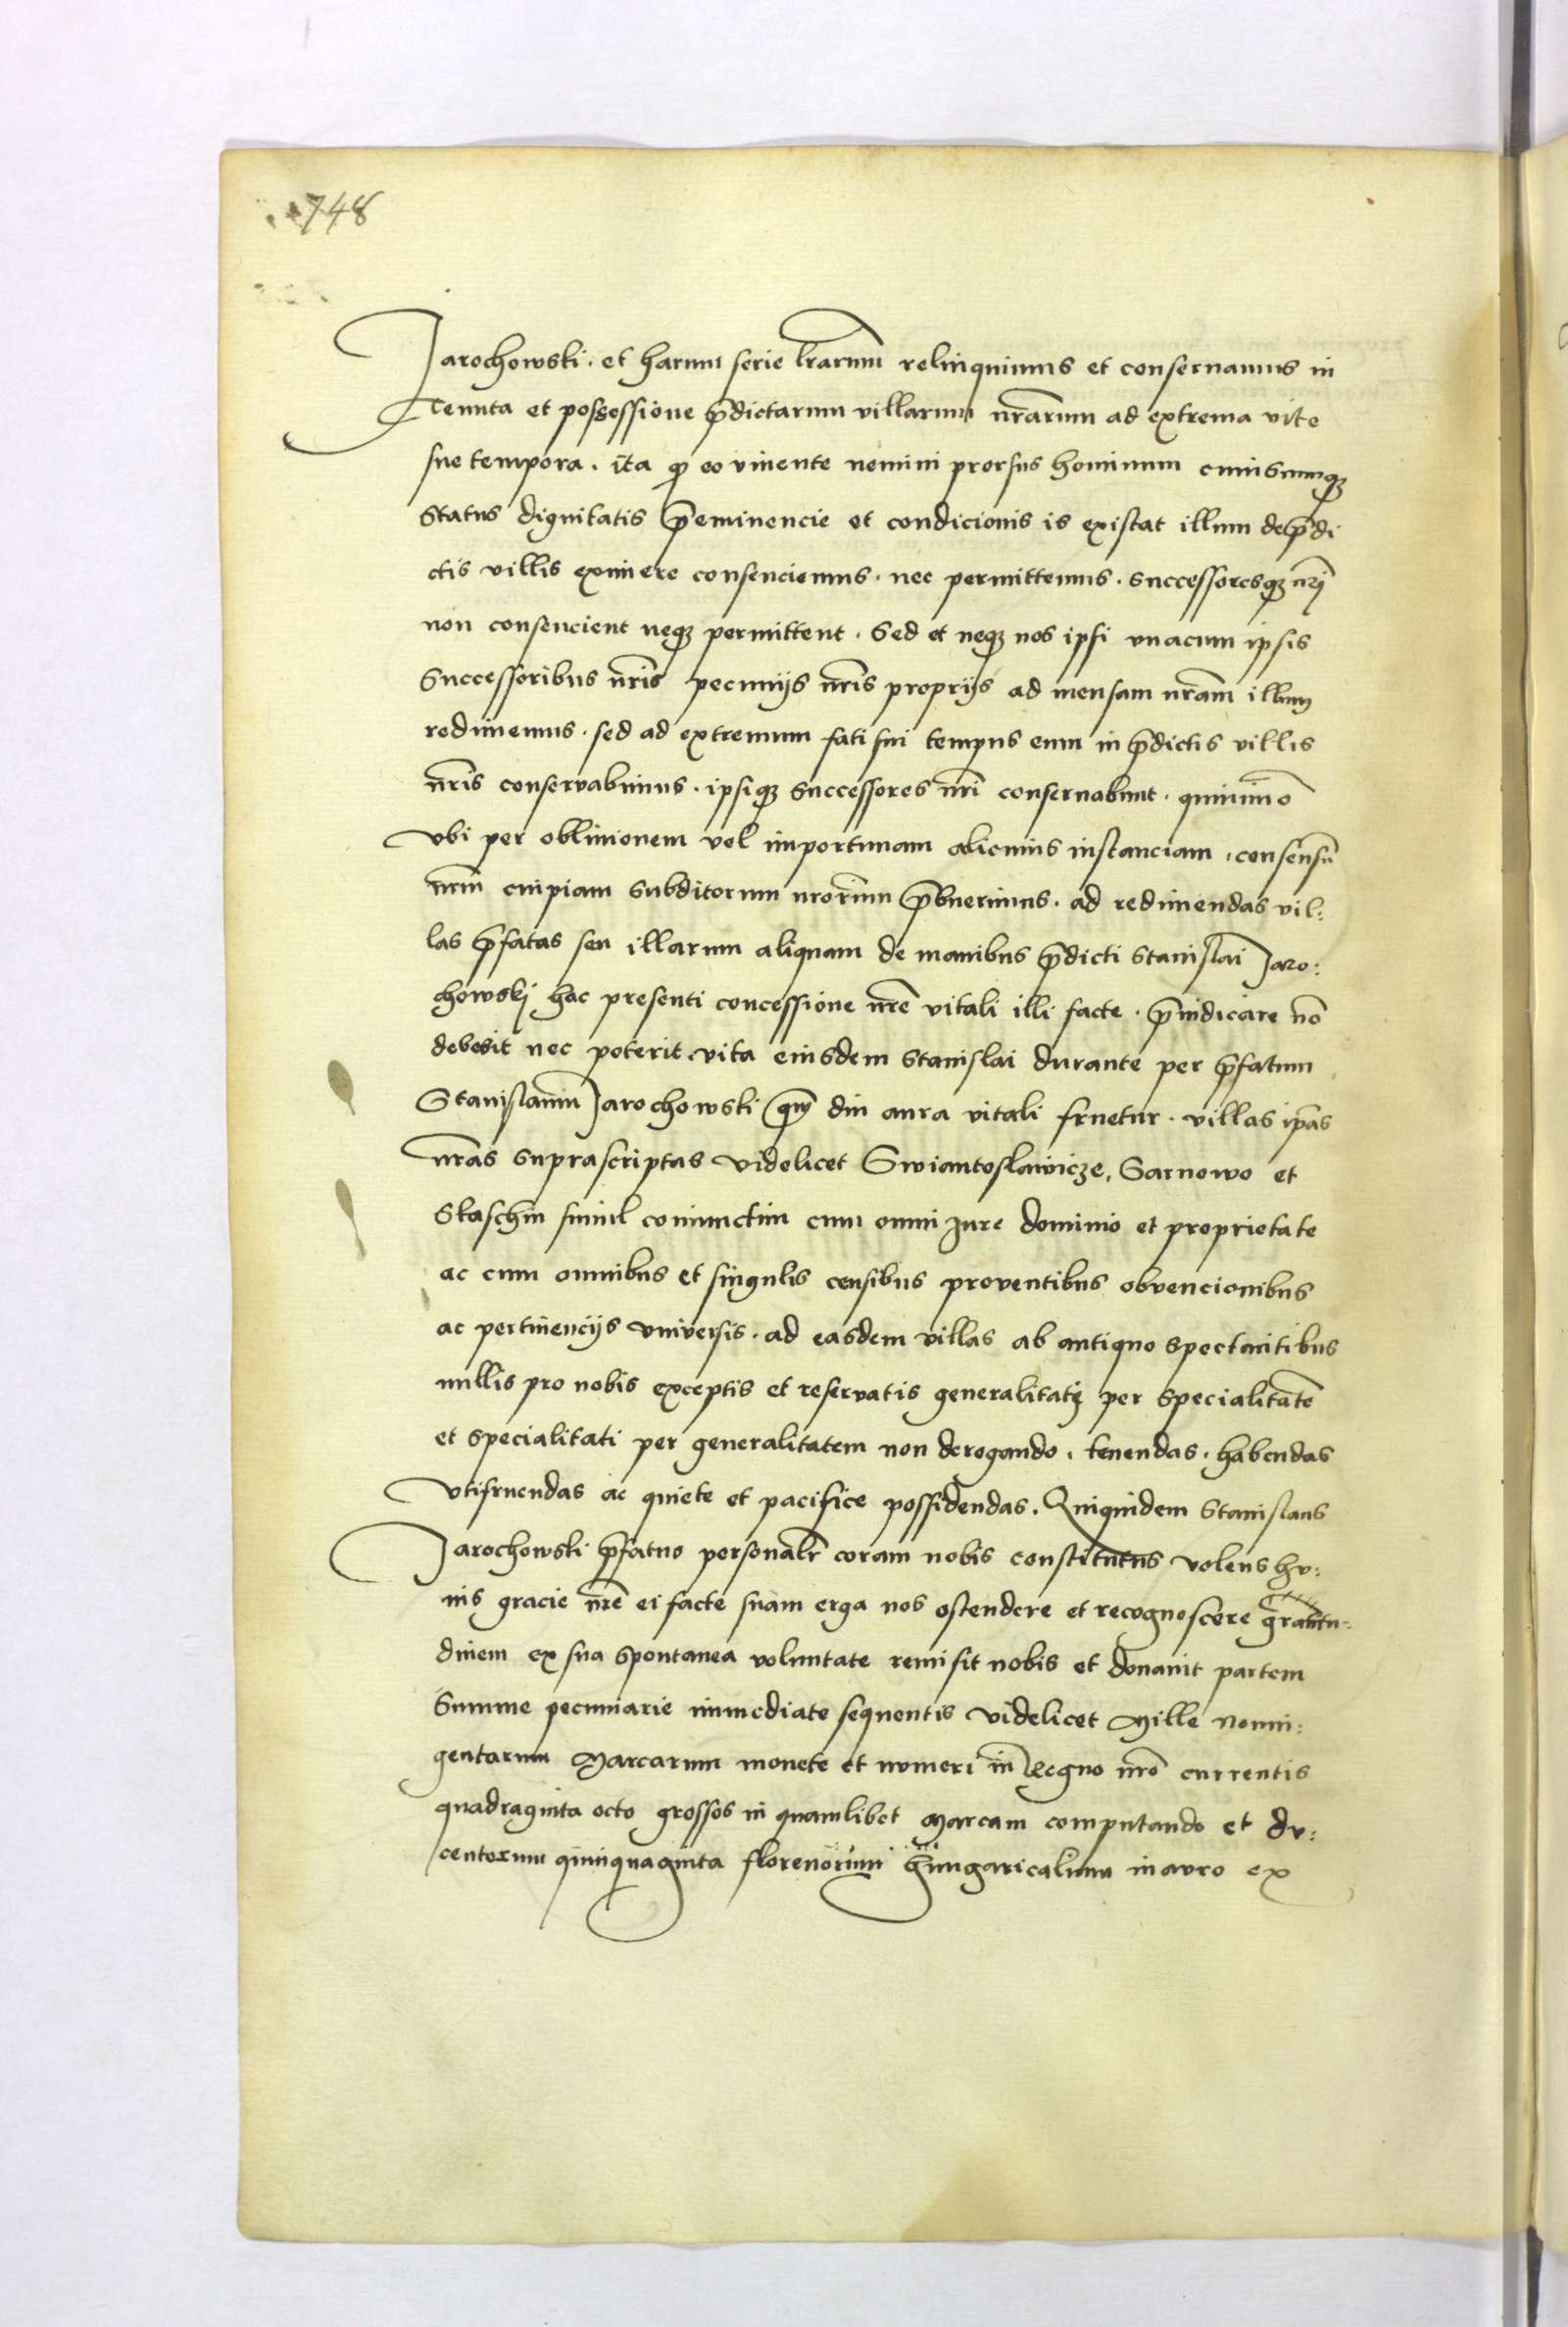 748
Jarochowski. et harum serie lrarum relinquimus et conservamus in
Tenuta et possessione pdictarum villarum nrarum ad extrema vite
sue tempora. ita qp eo vivente nemini prorsus hominum cuiuscumqz
status dignitatis peminencie et condicionis is existat illum de pdi
ctis villis eximere consenciemus. nec permittemus. successoresqz nrj
non consencient neqz permittent. Sed et neqz nos ipsi vnacum ipsis
Successoribus nris pecunijs nris proprijs ad mensam nram illum
redimemus. sed ad extremum fati sui tempus eum in pdictis villis
nris conservabimus. ipsiqz successores nri conservabunt. quinimo
Vbi per oblivionem vel importunam alicuius instanciam, consensu
nrm cuipiam subditorum nrorum pbuerimus. ad redimendas vil:
las pfatas seu illarum aliquam de manibus pdicti Stanislai Jaro:
chowskj hac presenti concessione nre vitali illi facte. piudicare no
debebit nec poterit. vita eiusdem Stanislai durante per pfatum
Stanislaum Jarochowski qm diu aura vitali fruetur. villas ipas
nras suprascriptas videlicet Swiantoslawicze, Sarnowo et
Staschin simul coniunctim cum omni Jure dominio et proprietate
ac cum omnibus et singulis censibus proventibus obvencionibus
ac pertinencijs vniversis. ad easdem villas ab antiquo spectantibus
nullis pro nobis exceptis et reservatis generalitati per specialitate
et specialitati per generalitatem non derogando. tenendas. habendas
Vtifruendas ac quiete et pacifice possidendas. Quiquidem Stanislaus
Jarochowski pfatus personalr coram nobis constitutus volens hu:
ius gracie nre ei facte suam erga nos ostendere et recognoscere gratitu:
dinem ex sua spontanea voluntate remisit nobis et donavit partem
Summe pecuniarie immediate sequentis videlicet Mille nonin:
gentarum Marcarum monete et numeri in Regno nro currentis
quadraginta octo grossos in quamlibet Marcam computando et du:
centorum quinquaginta florenorum hungaricalium in auro ex